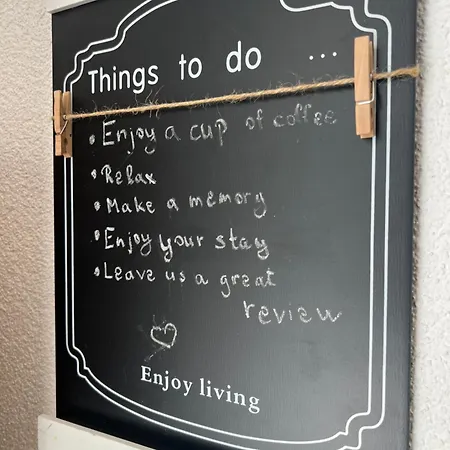 Things to do ...
• Enjoy a cup of coffee
• Relax
• Make a memory
• Enjoy your stay
• Leave us a great
review
Enjoy living